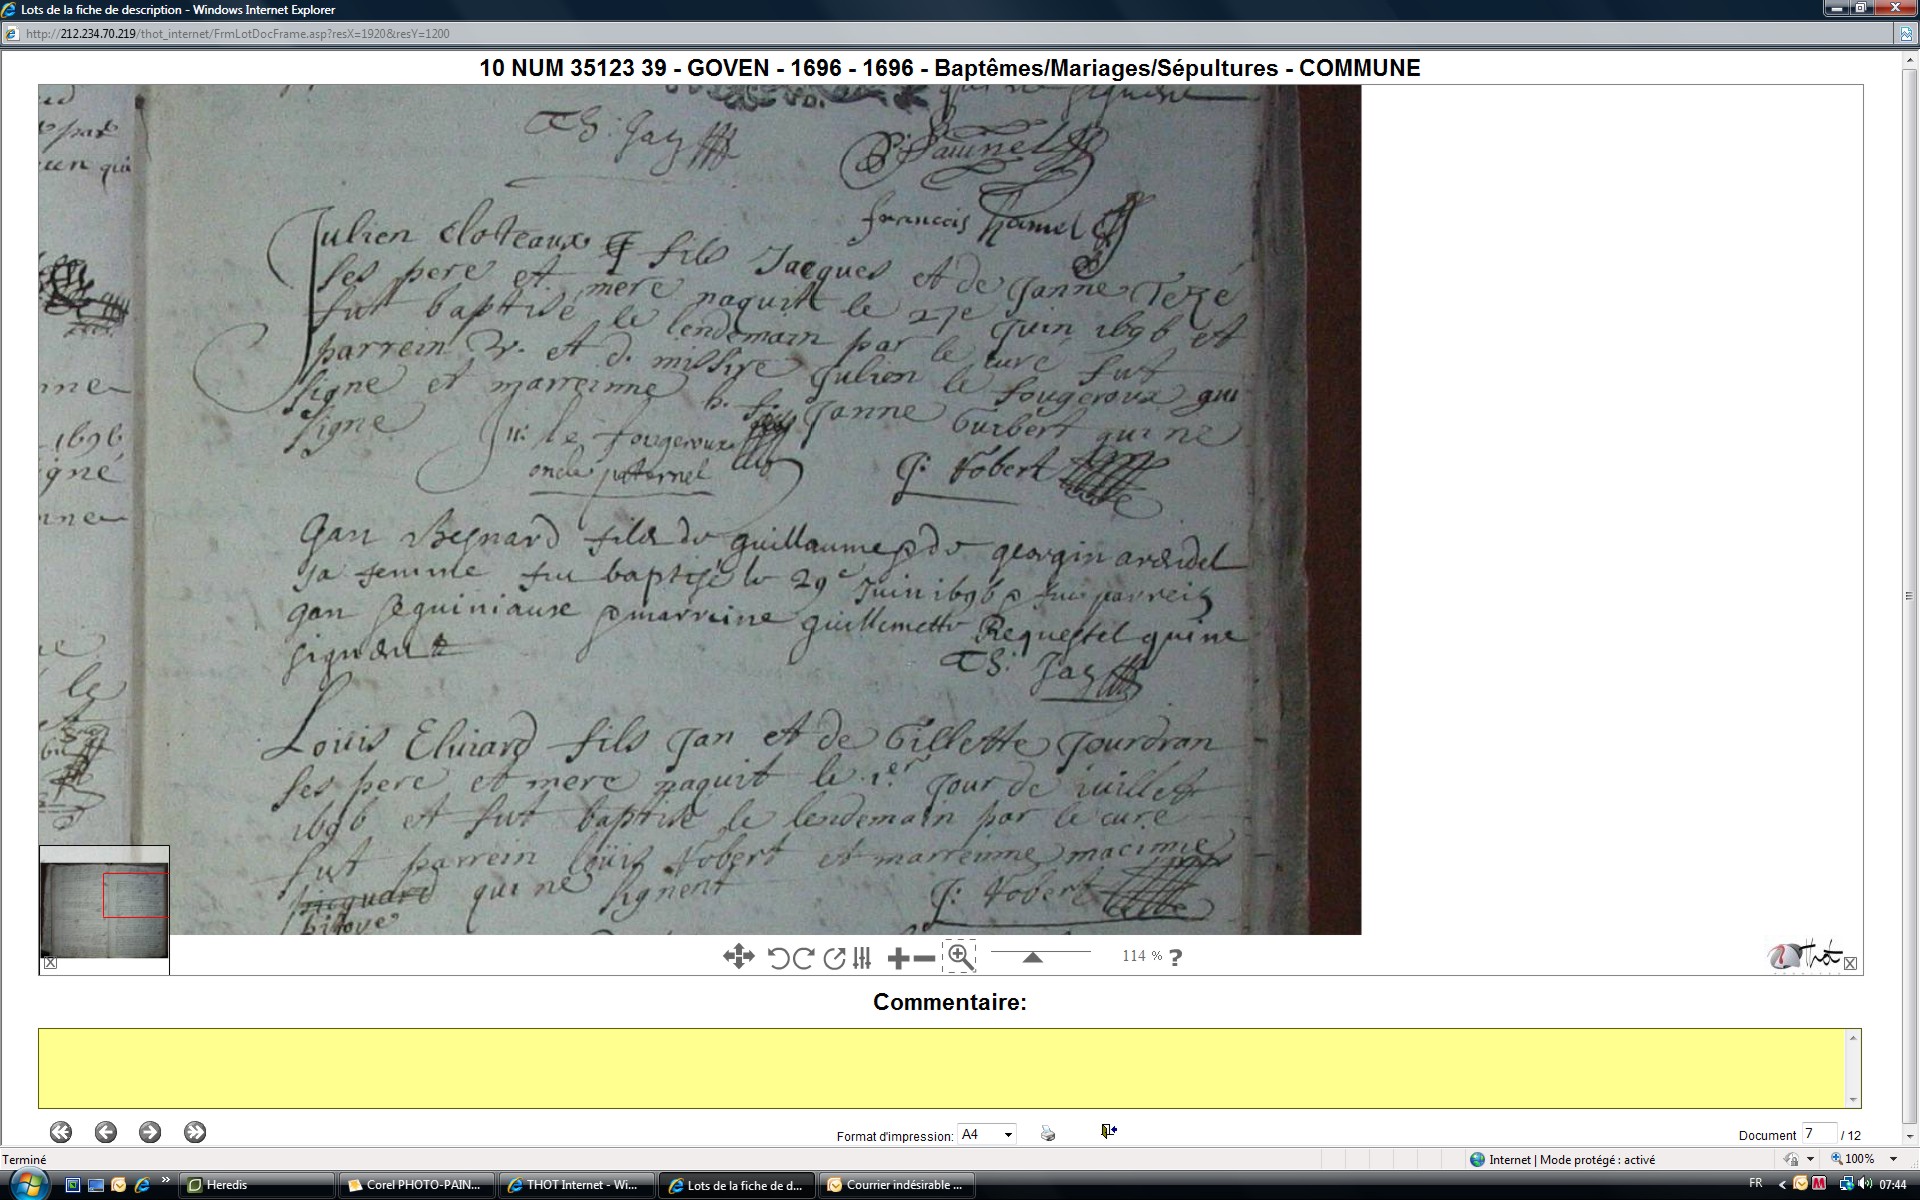 Lots de la fiche de description - Windows Internet Explorer
http://212.234.70.219/thot_internet/FrmLotDocFrame.asp?resX=1920&resY=1200
10 NUM 35123 39 - GOVEN - 1696 - 1696 - Baptêmes/Mariages/Sépultures - COMMUNE
qui ne signent
Th: Jay
francois hamel
Julien Closteaux fils Jacques et de Janne Tezé
ses pere et mere naquit le 27e Juin 1696 et
fut baptisé le lendemain par le curé fut
parrein v. et d. missire Julien le fougeroux qui
signe et marreinne h. f. Janne Guibert qui ne
signe
Ju: le fougeroux
oncle paternel
J: Nobert
Jan Begnard fils de guillaume & de georgin
sa femme fut baptisé le 29e Juin 1696 & fut parrein
gan & marreine guillemette Requestel qui ne
signent
Th: Jay
Louis Eluard fils Jan et de Gillette Jourdran
ses pere et mere naquit le 1er jour de juillet
1696 et fut baptisé le lendemain par le curé
fut parrein Louis Nobert et marreinne macime
qui ne signent
J: Nobert
1696
igné
le
114 % ?
Thot
Commentaire:
Format d'impression: A4
Document 7 / 12
Terminé
Internet | Mode protégé : activé
100%
Heredis
Corel PHOTO-PAIN...
THOT Internet - Wi...
Lots de la fiche de d...
Courrier indésirable ...
FR
07:44